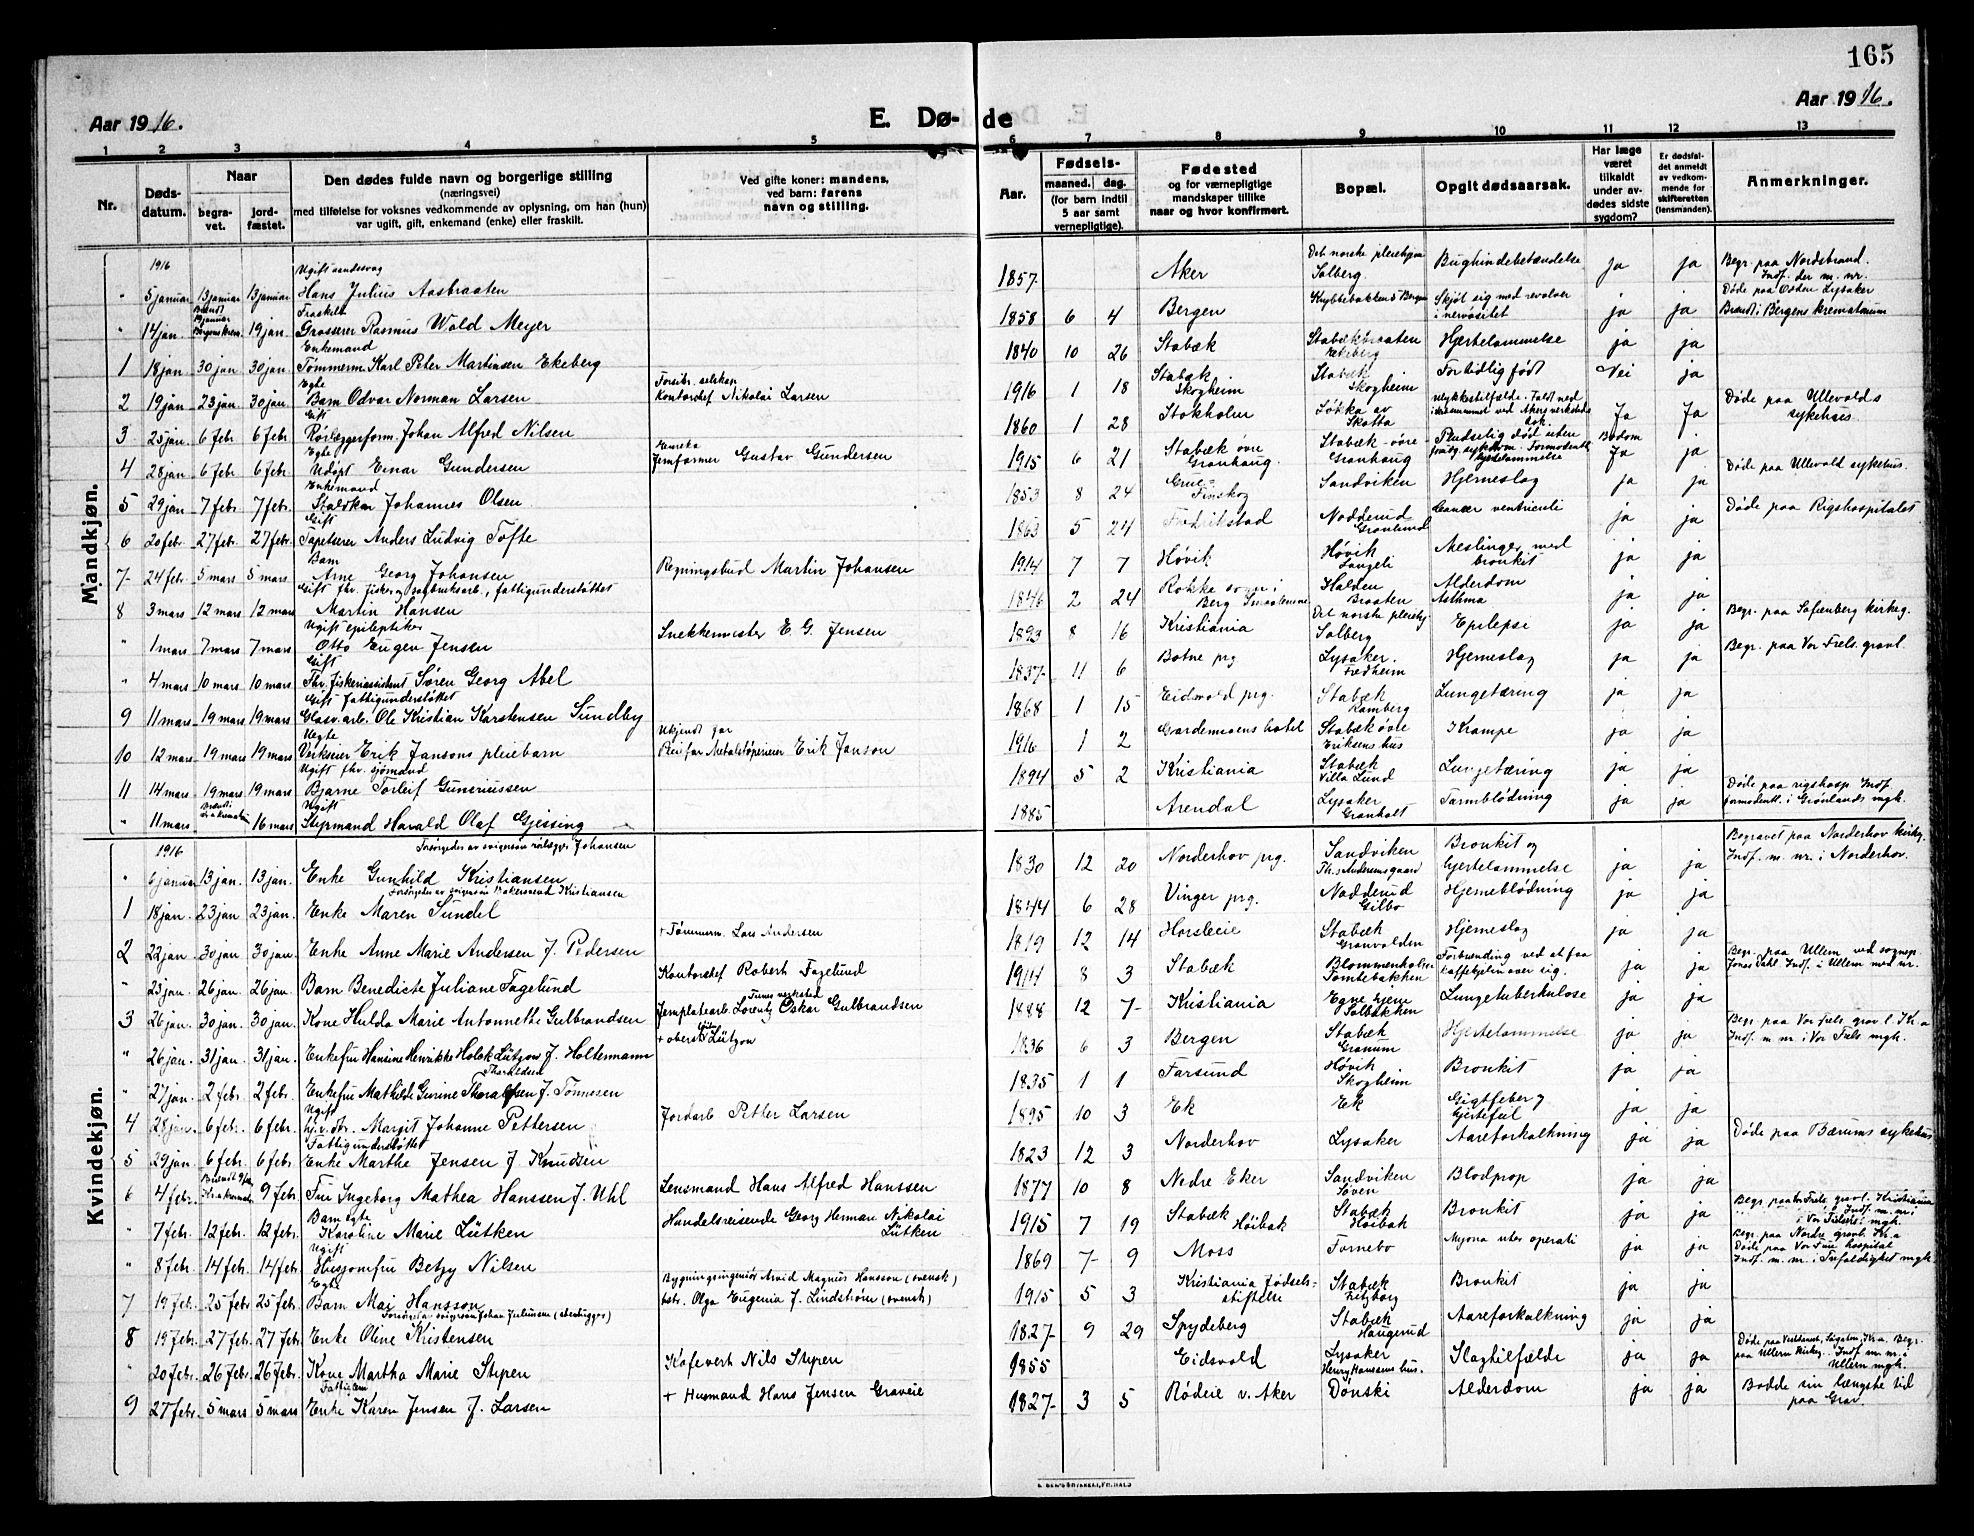 165
Aar 1916.
E. Dø- de
Aar 1916.
1 2 3 4 5 6 7 8 9 10 11 12 13
Nr.
Døds-
datum.
Naar
begra-
vet.
jord-
fæstet.
Den dødes fulde navn og borgerlige stilling
(næringsvei)
med tilføielse for voksnes vedkommende av oplysning, om han (hun)
var ugift, gift, enkemand (enke) eller fraskilt.
Ved gifte koner: mandens,
ved barn: farens
navn og stilling.
Aar.
Fødsels-
maaned. dag.
(for barn indtil
5 aar samt
vernepligtige).
Fødested
og for værnepligtige
mandskaper tillike
naar og hvor konfirmert.
Bopæl.
Opgit dødsaarsak.
Har læge
været
tilkaldt
under av-
dødes sidste
sygdom?
Er dødsfal-
det anmeldt
av vedkom-
mende for
skifteretten
(lensmanden).
Anmerkninger.
Mandkjøn.
1916
Ugift sindssvag
" 5 januar 13 januar 13 januar Hans Julius Aasbraaten 1857 Aker Det norske pleiehjem Solberg. Bughindebetændelse ja ja Begr. paa Nordstrand. Indf. der m. nr.
Fraskilt
" 14 jan. Brændt 19 januar Bergens krem. 19 jan. Grosserer Rasmus Wold Meyer 1858 6 4 Bergen Skjøt sig med revolver i nervøsitet ja ja Døde paa Odden Lysaker Brændt i Bergens krematorium
Enkemand
1 18 jan 30 jan 30 jan Tømmerm. Karl Peter Martinsen Ekeberg 1840 10 26 Stabæk Stabækbraaten Ekeberg Hjertelammelse ja ja
Egte
2 19 jan 23 jan 30 jan Barn Odvar Norman Larsen Forsikr. selskap Kontorchef Nikolai Larsen 1916 1 18 Stabæk Skogheim Stabæk Skogheim For tidlig født Nei ja
Gift
3 25 jan 6 febr 6 febr. Rørlæggerform. Johan Alfred Nilsen 1860 1 28 Stokholm Løkka av Skotta Ulykkestilfælde. Faldt ned Ja Ja Døde paa Ullevolds sykehus.
Egte
4 28 jan 6 febr 6 febr. Udøpt Einar Gundersen Eureka Jernformer Gustav Gundersen 1915 6 21 Stabæk øvre Granhaug. Stabæk øvre Granhaug Pludselig død uten forutg. sykdom. Formodentl. hjertelammelse Ja ja
Enkemand
5 29 jan 7 febr 7 febr. Staldkar Johannes Olsen 1853 8 24 Grue Finskog Sandviken Hjerneslag ja ja Døde paa Ullevold sykehus.
Gift
6 20 febr. 27 febr. 27 febr. Tapetserer Anders Ludvig Tofte 1863 5 24 Fredrikstad Nadderud Grønlund Cancer ventriculi ja ja Døde paa Rigshospitalet
Barn
7 24 febr. 5 mars 5 mars Arne Georg Johansen Regningsbud Martin Johansen 1914 7 7 Høvik Høvik Langeli Meslinger med bronkit ja ja
Gift fhv. fisker og sagbruksarb., fattigunderstøttet
8 3 mars 12 mars 12 mars Martin Hansen 1846 2 24 Rokke sogn i Berg Smaalenene Halden Braaten Alderdom Asthma ja ja
Ugift epileptiker
" 1 mars 7 mars 7 mars Otto Eugen Jensen Snekkermester E. G. Jensen 1893 8 16 Kristiania Det norske pleiehj. Solberg Epilepsi ja ja Begr. paa Sofienberg kirkeg.
Gift
" 4 mars 10 mars 10 mars Fhv. fiskeriassistent Søren Georg Abel 1837 11 6 Botne prg Lysaker. Fredheim Hjerneslag ja ja Begr. paa Vor Frels. gravl.
Gift Fattigunderstøttet
9 11 mars 19 mars 19 mars Glasv. arb. Ole Kristian Karstensen Sundby 1868 1 15 Eidsvold prg. Stabæk Ramberg Lungetæring ja ja
Uegte
10 12 mars 19 mars 19 mars Verkseier Erik Jansons pleiebarn Ukjendt far Pleiefar Metalstøperieier Erik Janson 1916 1 2 Gardemoens hotel Stabæk øvre Eriksens hus Krampe ja ja
Ugift fhv. sjømand
11 14 mars 19 mars 19 mars Bjarne Torleif Gunerius sen 1894 5 2 Kristiania Stabæk Villa Lund Lungetæring ja ja
Ugift
" 11 mars 16 mars Styrmand Harald Olaf Gjessing 1885 Arendal Lysaker Granholt Tarmblødning ja ja Døde paa rigshosp. Indf. formodentl. i Grønlands mgh.
Kvindekjøn.
1916
Forsørgedes av svigersøn Johansen
" 6 januar 13 jan. 13 jan. Enke Gunhild Kristiansen 1830 12 20 Norderhov prg. Sandviken Bronkit og hjertelammelse ja ja Begravet paa Norderhov kirkeg. Indf. m. nr. i Norderhov.
Forsørgedes av svigersøn Bakersvend Kristiansen
1 18 jan. 23 jan 23 jan. Enke Maren Sundel 1844 6 28 Vinger prg. Nadderud Gilbo Hjerneblødning ja ja
2 22 jan 30 jan. 30 jan. Enke Anne Marie Andersen f. Pedersen + Tømmerm. Lars Andersen 1819 12 14 Horsleie Stabæk Granvolden Hjerneslag ja ja
" 23 jan. 26 jan. 26 jan. Barn Benedicte Juliane Fagelund Kontorchef Robert Fagelund 1914 8 3 Stabæk Blommenholm Tomtebakken Forbrending ved at faa kaffekjelen over sig. ja ja Begr. paa Ullern ved sognep. Jonas Dahl Indf. i Ullern med nr.
3 26 jan. 30 jan. 30 jan. Kone Hulda Marie Antonnette Gulbrandsen Jernplatearb. Lorentz Oskar Gulbrandsen 1888 12 7 Kristiania Egne hjem Solbakken Lungetuberkulose ja ja
" 26 jan. 31 jan. 31 jan. Enkefru Hansine Henrikke Holck Lützow f. Holtermann + oberstl. Lützow 1836 6 3 Bergen Stabæk Granum Hjertelammelse ja ja Begr. paa Vor Frels. grav l. Kr.a Indf. m nr i Vor Frels mgh.
Tharaldsen
" 27 jan. 2 febr. 2 febr. Enkefru Mathilde Gurine f. Tønnesen 1835 1 1 Farsund Høvik Skogheim Bronkit ja ja
Ugift
4 28 jan. 6 febr. 6 febr. Margit Johanne Pettersen Jordarb Petter Larsen 1895 10 3 Ek Ek Gigtfeber og hjertefeil ja ja
Fattigunderstøttet
5 29 jan. 6 febr. 6 febr. Enke Marthe Jensen f. Knudsen 1823 12 3 Norderhov Lysaker Aareforkalkning ja ja Døde paa Bærums sykehus
6 4 febr. 9 febr. Fru Ingeborg Mathea Hanssen f. Uhl Lensmand Hans Alfred Hanssen 1877 10 8 Nedre Eker Sandviken Løven Blodprop ja ja
Barn egte
" 7 febr. 12 febr. 12 febr. Karoline Marie Lütken Handelsreisende Georg Herman Nikolai Lütken 1915 7 19 Stabæk Høibak Stabæk Høibak Bronkit ja ja Begr. paa Vor Frels. gravl. Kristiania Indf. m. nr. i Vor Frelsers mgh.
Ugift
" 8 febr. 14 febr. 14 febr. Husjomfru Betzy Nilsen 1869 7 9 Moss Fornebo Myoma uter operati ja ja Begr. paa Nordre gravl. Kr.a Døde paa Vor Frue hospital Indf. m. nr. i Trefoldighet mgh.
Egte
7 19 febr. 25 febr. 25 febr. Barn Mai Hansson Bygningsingeniør Arvid Magnus Hansson (svensk) hstr. Olga Eugenia f. Lindströn (svensk) 1915 5 3 Kristiania Fødselsstiftelse Stabæk Fritzborg Bronkit ja ja
8 19 febr. 27 febr. 27 febr. Enke Oline Kristensen 1827 9 29 Spydeberg Stabæk Haugerud Aareforkalkning ja ja
" 20 febr. 26 febr. 26 febr. Kone Martha Marie Stipen Kafevert Nils Stipen 1855 Eidsvold Lysaker Henry Hansens hus. Slagtilfælde ja ja Begr. paa Ullern kirkeg. Indf m nr. i Ullern mgh.
Fattiglem
9 27 febr. 5 mars 5 mars Enke Karen Jensen f. Larsen + Husmand Hans Jensen Graveie 1827 3 5 Rødeie v. Aker Dønski Alderdom ja ja Bodde sin længste tid paa Grav.